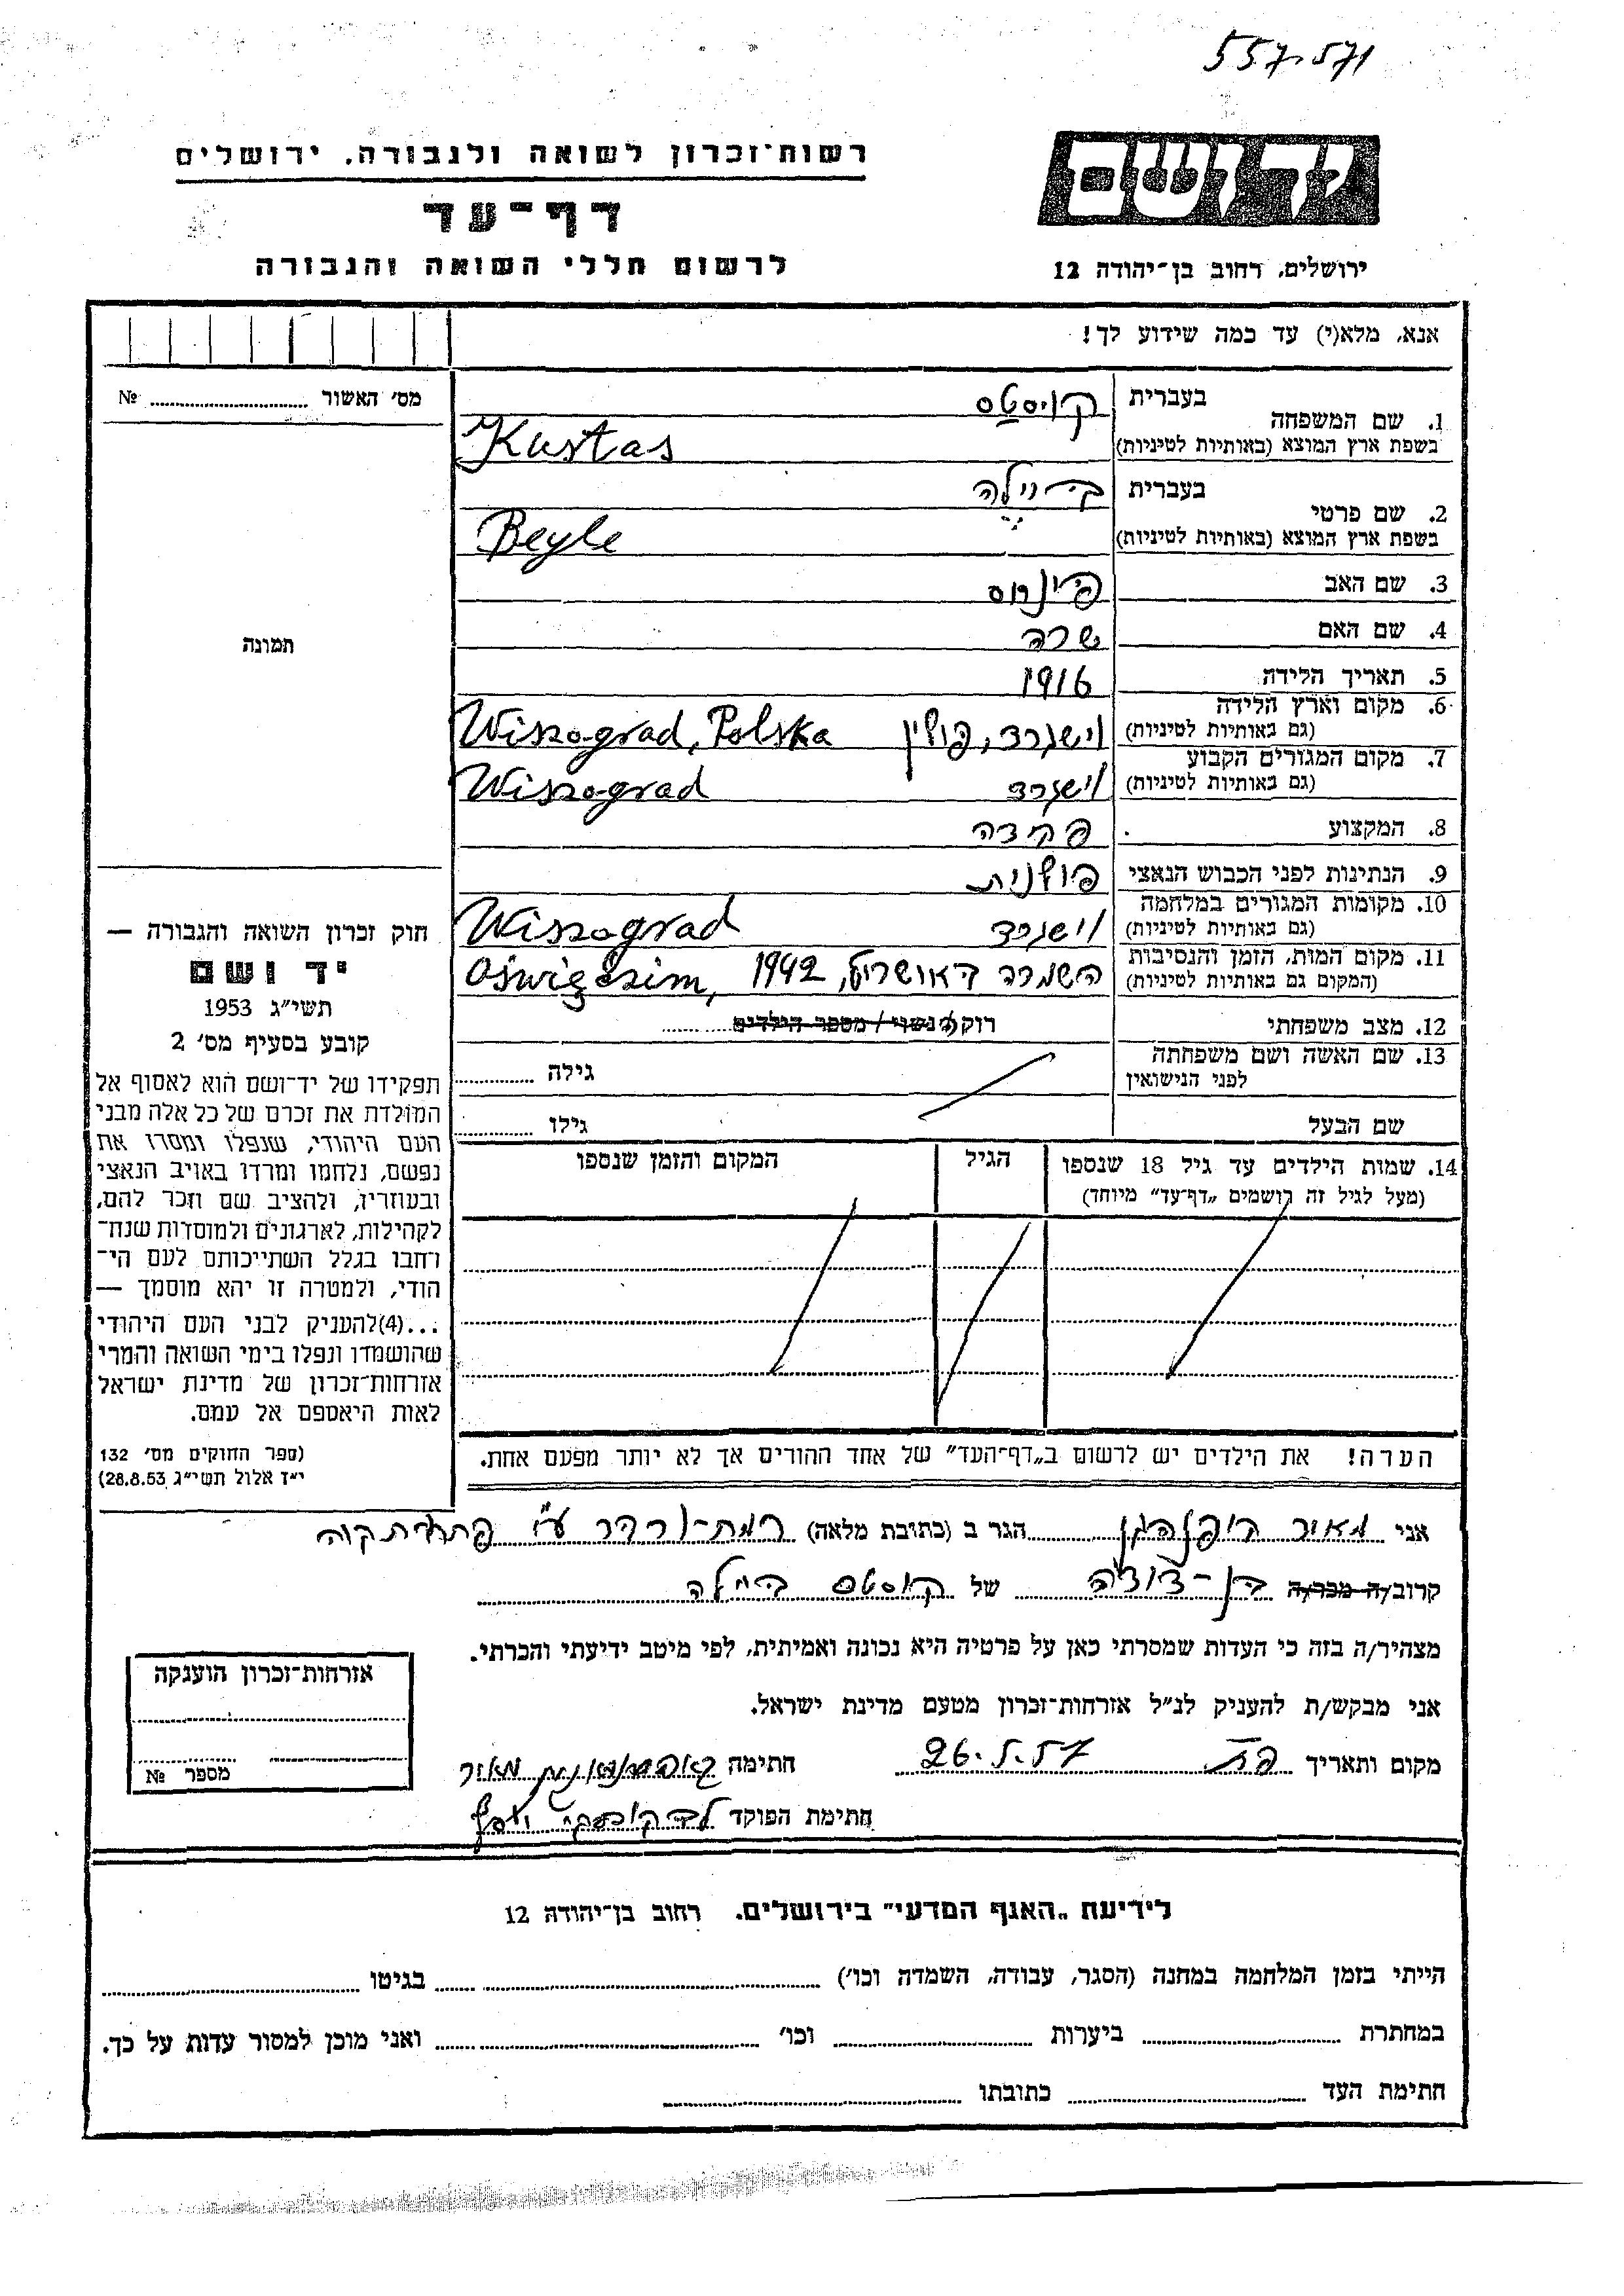 557.571
יד ושם
רשות־זכרון לשואה ולגבורה, ירושלים
דף־עד
לרשום חללי השואה והגבורה
ירושלים, רחוב בן־יהודה 12
אנא, מלא(י) עד כמה שידוע לך!
מס׳ האשור № 
1. שם המשפחה בעברית
בשפת ארץ המוצא (באותיות לטיניות) Kustas
2. שם פרטי בעברית ביילה
בשפת ארץ המוצא (באותיות לטיניות) Beyle
3. שם האב פינחס
4. שם האם שרה
5. תאריך הלידה 1916
6. מקום וארץ הלידה (גם באותיות לטיניות) וישגרד, פולין Wiszograd, Polska
7. מקום המגורים הקבוע (גם באותיות לטיניות) וישגרד Wiszograd
8. המקצוע פקידה
9. הנתינות לפני הכבוש הנאצי פולנית
10. מקומות המגורים במלחמה (גם באותיות לטיניות) וישגרד Wiszograd
11. מקום המות, הזמן והנסיבות (המקום גם באותיות לטיניות) 1942 Oświęczim,
12. מצב משפחתי רווק/ה נשוי / מספר הילדים
13. שם האשה ושם משפחתה לפני הנישואין גילה
שם הבעל גילו
14. שמות הילדים עד גיל 18 שנספו
(מעל לגיל זה רושמים „דף־עד” מיוחד)
הגיל
המקום והזמן שנספו
הערה! את הילדים יש לרשום ב„דף־העד” של אחד ההורים אך לא יותר מפעם אחת.
תמונה
חוק זכרון השואה והגבורה —
יד ושם
תשי״ג 1953
קובע בסעיף מס׳ 2
תפקידו של יד־ושם הוא לאסוף אל
המולדת את זכרם של כל אלה מבני
העם היהודי, שנפלו ומסרו את
נפשם, נלחמו ומרדו באויב הנאצי
ובעוזריו, ולהציב שם וזכר להם,
לקהילות, לארגונים ולמוסדות שנח־
רחבו בגלל השתייכותם לעם הי־
הודי, ולמטרה זו יהא מוסמך —
...(4)להעניק לבני העם היהודי
שהושמדו ונפלו בימי השואה והמרי
אזרחות־זכרון של מדינת ישראל
לאות היאספם אל עמם.
(ספר החוקים מס׳ 132
י״ד אלול תשי״ג 28.8.53)
אני מאיר הגר ב (כתובת מלאה) פתח־תקוה
קרוב/ה מכר/ה בן־דודה של קוסטס ביילה
מצהיר/ה בזה כי העדות שמסרתי כאן על פרטיה היא נכונה ואמיתית, לפי מיטב ידיעתי והכרתי.
אני מבקש/ת להעניק לנ״ל אזרחות־זכרון מטעם מדינת ישראל.
מקום ותאריך פ״ת 26.5.57 חתימה מאור
חתימת הפוקד
אזרחות־זכרון הוענקה
מספר №
לידיעת „האגף המדעי” בירושלים. רחוב בן־יהודה 12
הייתי בזמן המלחמה במחנה (הסגר, עבודה, השמדה וכו׳) בגיטו
במחתרת ביערות וכו׳ ואני מוכן למסור עדות על כך.
חתימת העד כתובתו